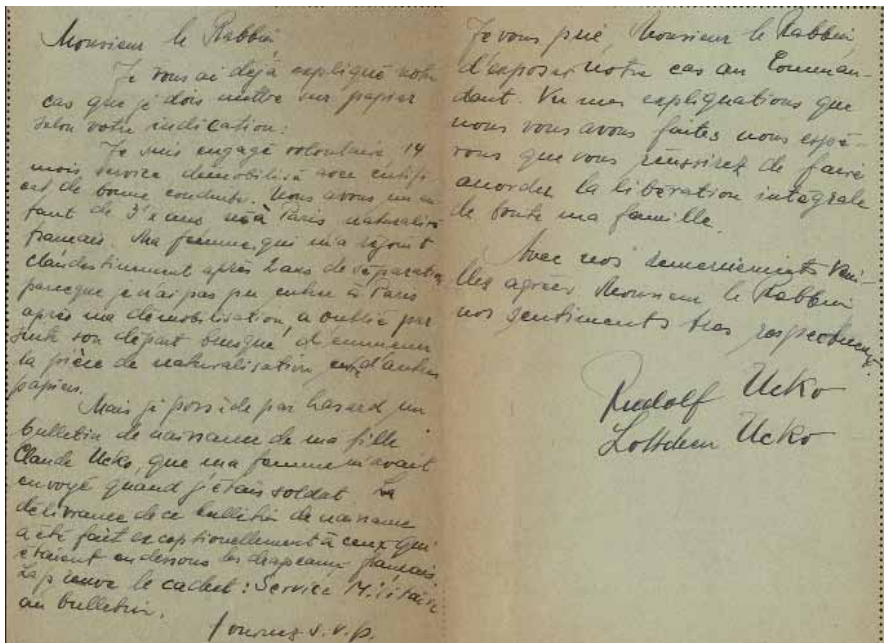 Monsieur le Rabbin,
Je vous ai déjà expliqué notre
cas que je dois mettre sur papier
selon votre indication:
Je suis engagé volontaire 14
mois, service démobilisé avec certifi
cat de bonne conduite. Nous avons un en
fant de 3½ ans né à Paris naturalisé
français. Ma femme, qui m'a rejoint
clandestinement après 2 ans de séparation
parceque je n'ai pas pu entrer à Paris
après ma démobilisation, a oublié par
suite son départ brusqué d'emmener
la pièce de naturalisation d'autres
papiers.
Mais je possède par hasard un
bulletin de naissance de ma fille
Claude Ucko, que ma femme m'avait
envoyé quand j'étais soldat. La
délivrance de ce bulletin de naissance
a été fait exceptionellement à ceux qui
étaient en dessous les drapeaux français.
La preuve le cachet: Service Militaire
au bulletin.
Tournez s.v.p.
Je vous prie, Monsieur le Rabbin,
d'exposer notre cas au Comman-
dant. Vu mes explignations que
nous vous avons faites nous espé-
rons que vous réussirez de faire
accorder la libération intégrale
de toute ma famille.
Avec nos remerciements veui-
llez agréer, Monsieur le Rabbin
nos sentiments tres respectueux.
Rudolf Ucko
Lottchen Ucko